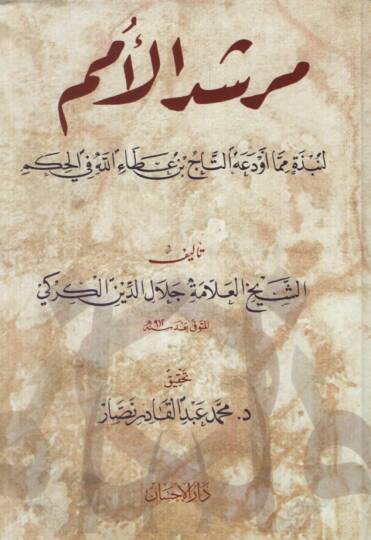 مرشد الأمم
لنبذة مما أودعه التاج بن عطاء الله في الحكم
تأليف
الشيخ العلامة جلال الدين الكركي
المتوفى بعد سنة ٩١٢هـ
تحقيق
د. محمد عبد القادر نصار
دار الإحسان